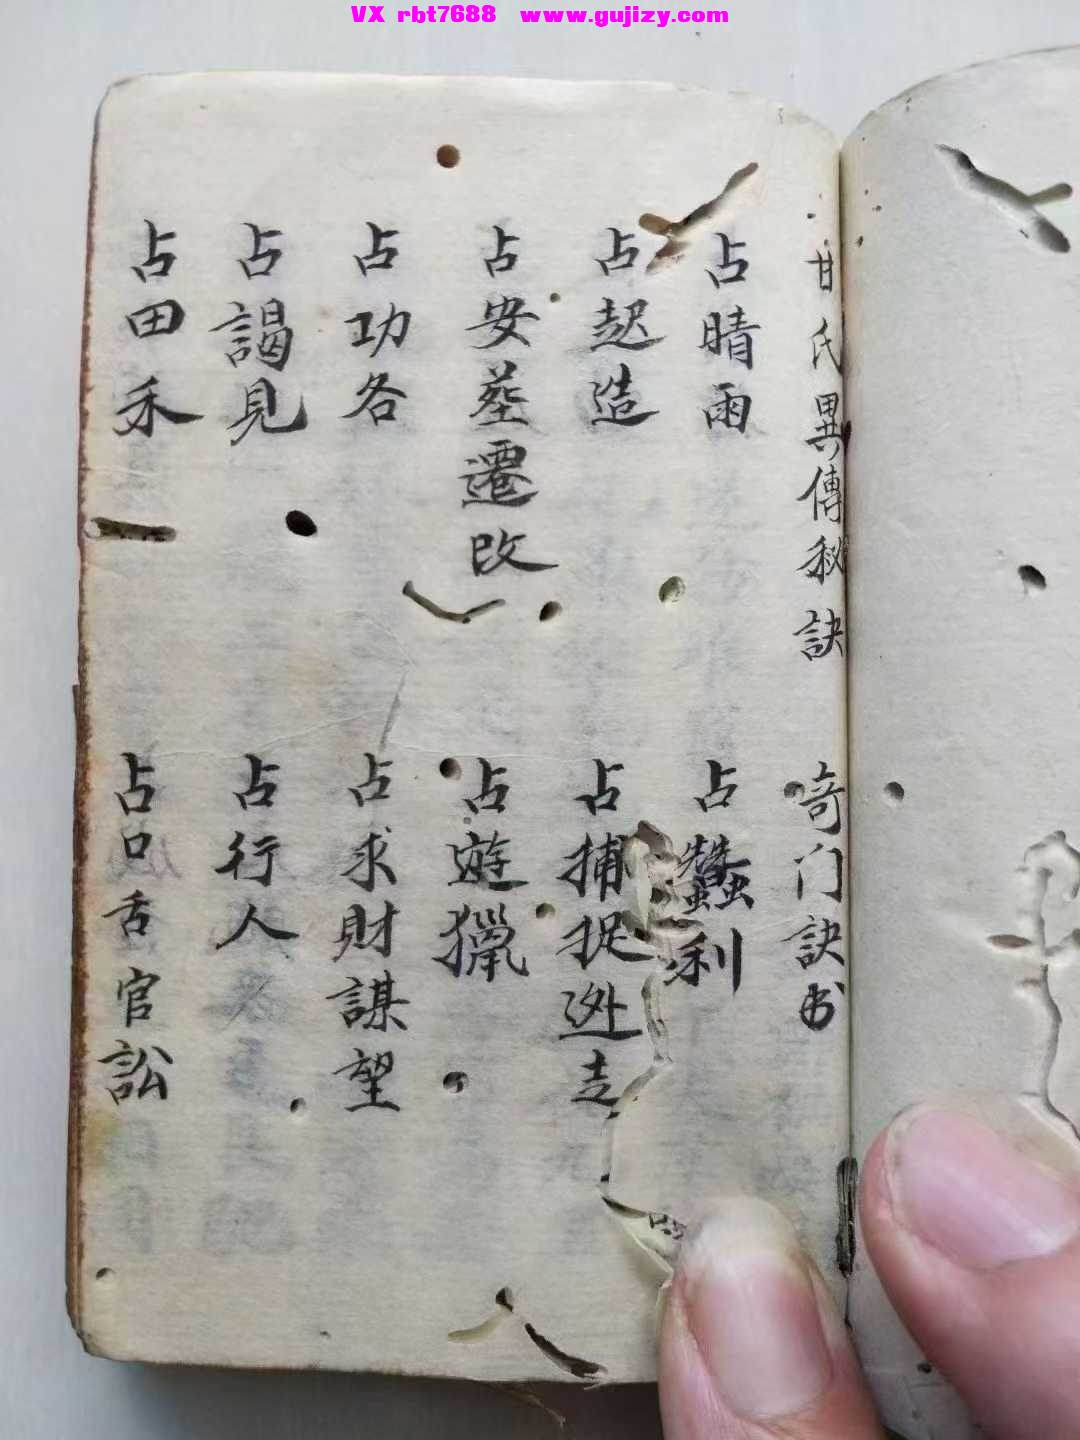 VX rbt7688 www.gujizy.com
甘氏異傳秘訣 奇门訣书
占晴雨 占蠶利
占起造 占捕捉逃走
占安葬遷改 占遊獵
占功名 占求財謀望
占謁見 占行人
占田禾 占口舌官訟